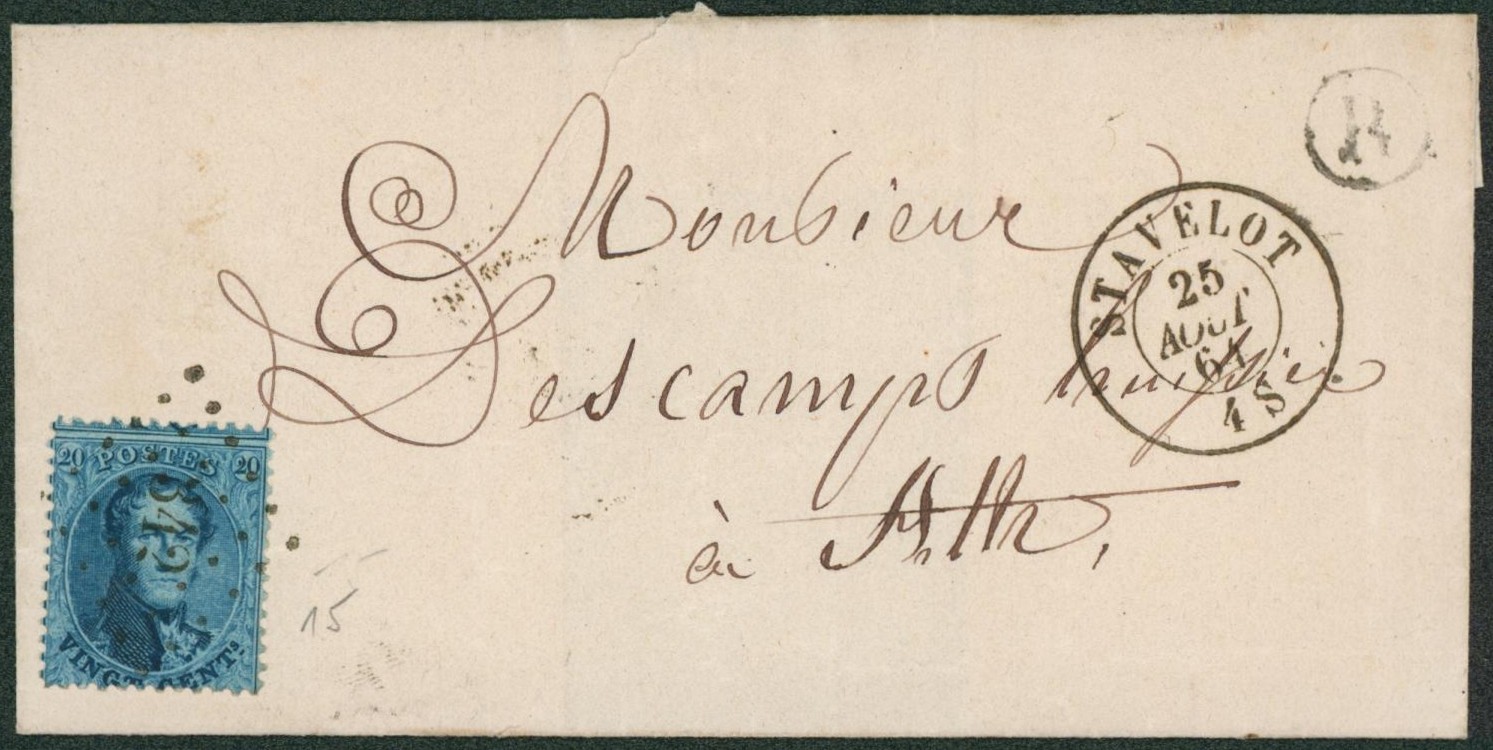 R
Monsieur
STAVELOT
25
AOUT
64
4 S
Descamps huissier
à Ath,
20 POSTES 20
342
VINGT CENTS
15